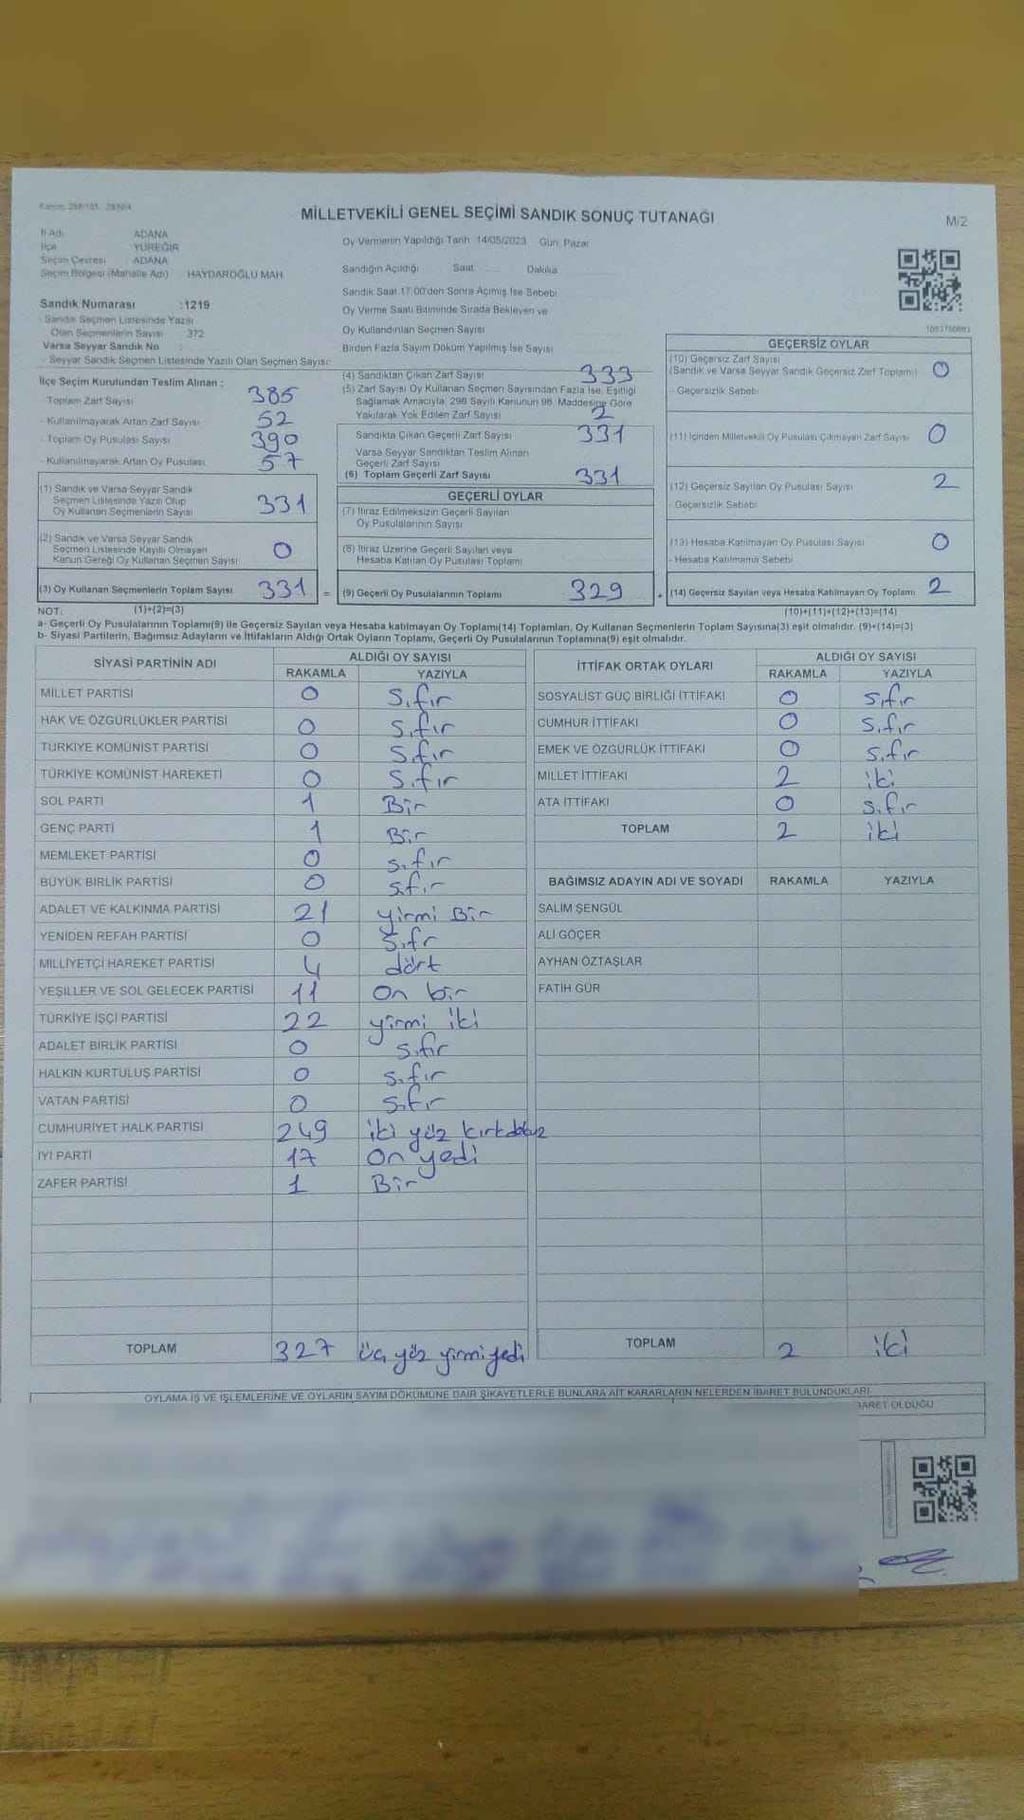 MİLLETVEKİLİ GENEL SEÇİMİ SANDIK SONUÇ TUTANAĞI
M/2
İl Adı ADANA
İlçe YÜREĞİR
Seçim Çevresi ADANA
Seçim Bölgesi (Mahalle Adı) HAYDAROĞLU MAH
Sandık Numarası :1219
Sandık Seçmen Listesinde Yazılı
Olan Seçmenlerin Sayısı 372
Varsa Seyyar Sandık No :
- Seyyar Sandık Seçmen Listesinde Yazılı Olan Seçmen Sayısı:
Oy Vermenin Yapıldığı Tarih 14/05/2023 Gün: Pazar
Sandığın Açıldığı Saat Dakika
Sandık Saat 17:00'den Sonra Açılmış İse Sebebi
Oy Verme Saati Bitiminde Sırada Bekleyen ve
Oy Kullandırılan Seçmen Sayısı
Birden Fazla Sayım Döküm Yapılmış İse Sayısı
İlçe Seçim Kurulundan Teslim Alınan :
Toplam Zarf Sayısı 385
- Kullanılmayarak Artan Zarf Sayısı 52
- Toplam Oy Pusulası Sayısı 390
- Kullanılmayarak Artan Oy Pusulası 57
(1) Sandık ve Varsa Seyyar Sandık
Seçmen Listesinde Yazılı Olup
Oy Kullanan Seçmenlerin Sayısı 331
(2) Sandık ve Varsa Seyyar Sandık
Seçmen Listesinde Kayıtlı Olmayan
Kanun Gereği Oy Kullanan Seçmen Sayısı 0
(3) Oy Kullanan Seçmenlerin Toplam Sayısı 331 =
(4) Sandıktan Çıkan Zarf Sayısı 333
(5) Zarf Sayısı Oy Kullanan Seçmen Sayısından Fazla İse, Eşitliği
Sağlamak Amacıyla, 298 Sayılı Kanunun 98. Maddesine Göre
Yakılarak Yok Edilen Zarf Sayısı 2
Sandıkta Çıkan Geçerli Zarf Sayısı 331
Varsa Seyyar Sandıktan Teslim Alınan
Geçerli Zarf Sayısı
(6) Toplam Geçerli Zarf Sayısı 331
GEÇERLİ OYLAR
(7) İtiraz Edilmeksizin Geçerli Sayılan
Oy Pusulalarının Sayısı
(8) İtiraz Üzerine Geçerli Sayılan veya
Hesaba Katılan Oy Pusulası Toplamı
(9) Geçerli Oy Pusulalarının Toplamı 329 +
GEÇERSİZ OYLAR
(10) Geçersiz Zarf Sayısı
(Sandık ve Varsa Seyyar Sandık Geçersiz Zarf Toplamı) 0
- Geçersizlik Sebebi
(11) İçinden Milletvekili Oy Pusulası Çıkmayan Zarf Sayısı 0
(12) Geçersiz Sayılan Oy Pusulası Sayısı 2
- Geçersizlik Sebebi
(13) Hesaba Katılmayan Oy Pusulası Sayısı 0
- Hesaba Katılmama Sebebi
(14) Geçersiz Sayılan veya Hesaba Katılmayan Oy Toplamı 2
NOT: (1)+(2)=(3) (10)+(11)+(12)+(13)=(14)
a- Geçerli Oy Pusulalarının Toplamı(9) ile Geçersiz Sayılan veya Hesaba katılmayan Oy Toplamı(14) Toplamları, Oy Kullanan Seçmenlerin Toplam Sayısına(3) eşit olmalıdır. (9)+(14)=(3)
b- Siyasi Partilerin, Bağımsız Adayların ve İttifakların Aldığı Ortak Oyların Toplamı, Geçerli Oy Pusulalarının Toplamına(9) eşit olmalıdır.
SİYASİ PARTİNİN ADI ALDIĞI OY SAYISI
RAKAMLA YAZIYLA
MİLLET PARTİSİ 0 Sıfır
HAK VE ÖZGÜRLÜKLER PARTİSİ 0 Sıfır
TÜRKİYE KOMÜNİST PARTİSİ 0 Sıfır
TÜRKİYE KOMÜNİST HAREKETİ 0 Sıfır
SOL PARTİ 1 Bir
GENÇ PARTİ 1 Bir
MEMLEKET PARTİSİ 0 sıfır
BÜYÜK BİRLİK PARTİSİ 0 sıfır
ADALET VE KALKINMA PARTİSİ 21 yirmi Bir
YENİDEN REFAH PARTİSİ 0 Sıfr
MİLLİYETÇİ HAREKET PARTİSİ 4 dört
YEŞİLLER VE SOL GELECEK PARTİSİ 11 On bir
TÜRKİYE İŞÇİ PARTİSİ 22 yirmi iki
ADALET BİRLİK PARTİSİ 0 Sıfır
HALKIN KURTULUŞ PARTİSİ 0 Sıfır
VATAN PARTİSİ 0 Sıfır
CUMHURİYET HALK PARTİSİ 249 iki yüz kırkdokuz
İYİ PARTİ 17 On yedi
ZAFER PARTİSİ 1 Bir
TOPLAM 327 üç yüz yirmi yedi
İTTİFAK ORTAK OYLARI ALDIĞI OY SAYISI
RAKAMLA YAZIYLA
SOSYALİST GÜÇ BİRLİĞİ İTTİFAKI 0 sıfır
CUMHUR İTTİFAKI 0 sıfır
EMEK VE ÖZGÜRLÜK İTTİFAKI 0 sıfır
MİLLET İTTİFAKI 2 iki
ATA İTTİFAKI 0 sıfır
TOPLAM 2 iki
BAĞIMSIZ ADAYIN ADI VE SOYADI RAKAMLA YAZIYLA
SALİM ŞENGÜL
ALİ GÖÇER
AYHAN ÖZTAŞLAR
FATİH GÜR
TOPLAM 2 iki
OYLAMA İŞ VE İŞLEMLERİNE VE OYLARIN SAYIM DÖKÜMÜNE DAİR ŞİKAYETLERLE BUNLARA AİT KARARLARIN NELERDEN İBARET BULUNDUKLARI
BARET OLDUĞU